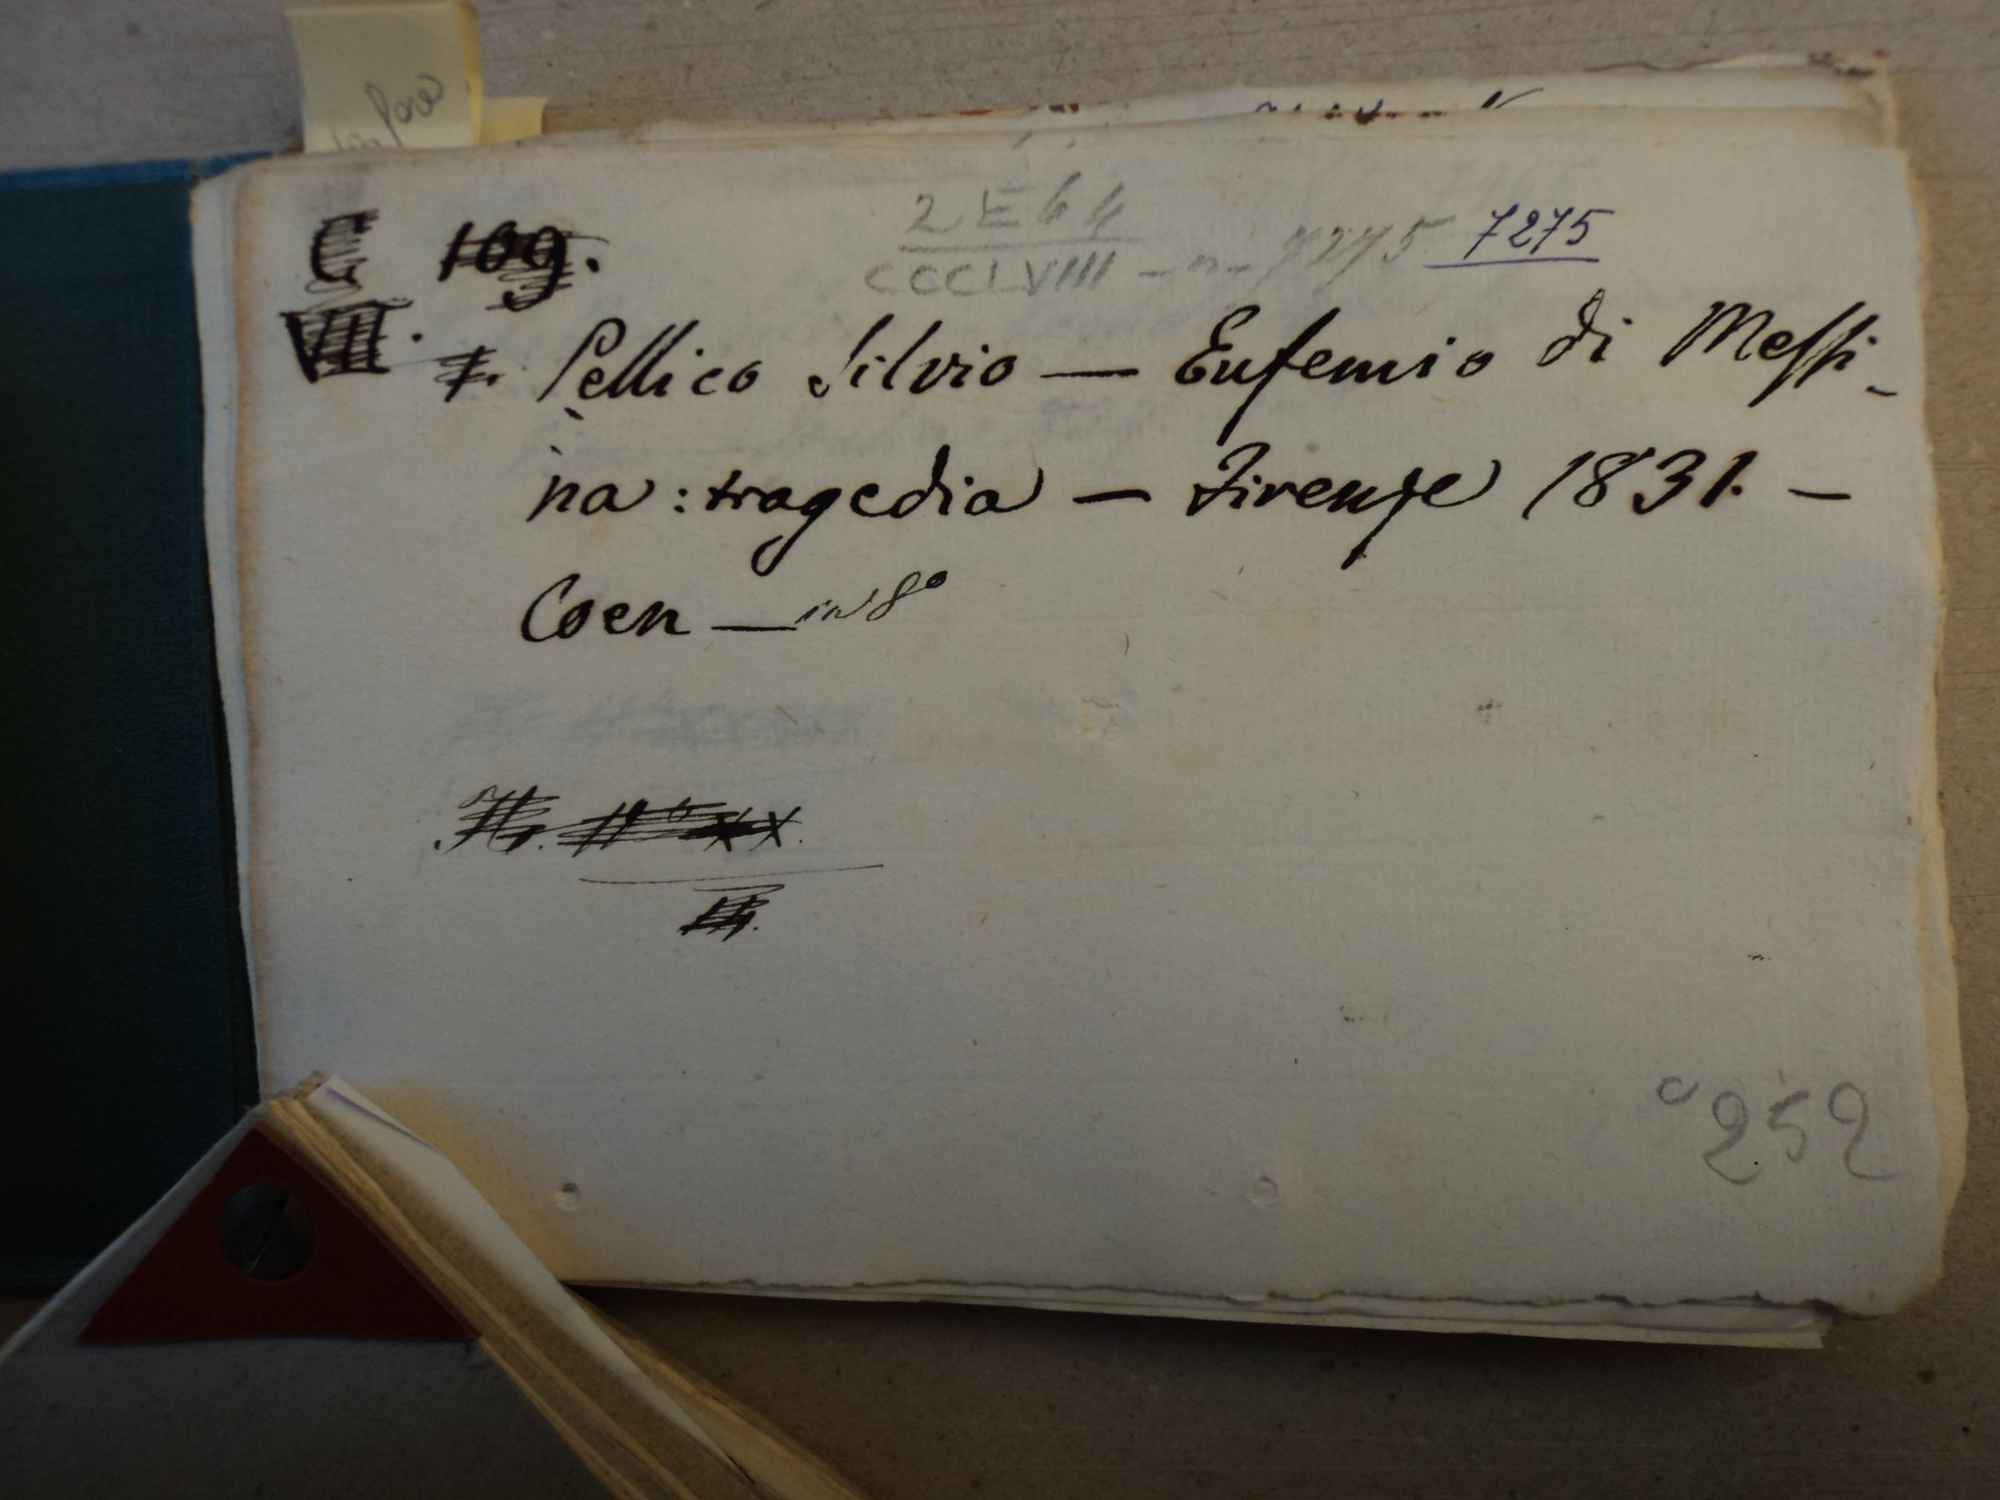 C 109. 2E64
VII. CCCLVIII - n - 7275 7275
I. Pellico Silvio — Eufemio di Messi-
na : tragedia — Firenze 1831. —
Coen — in 8°
252